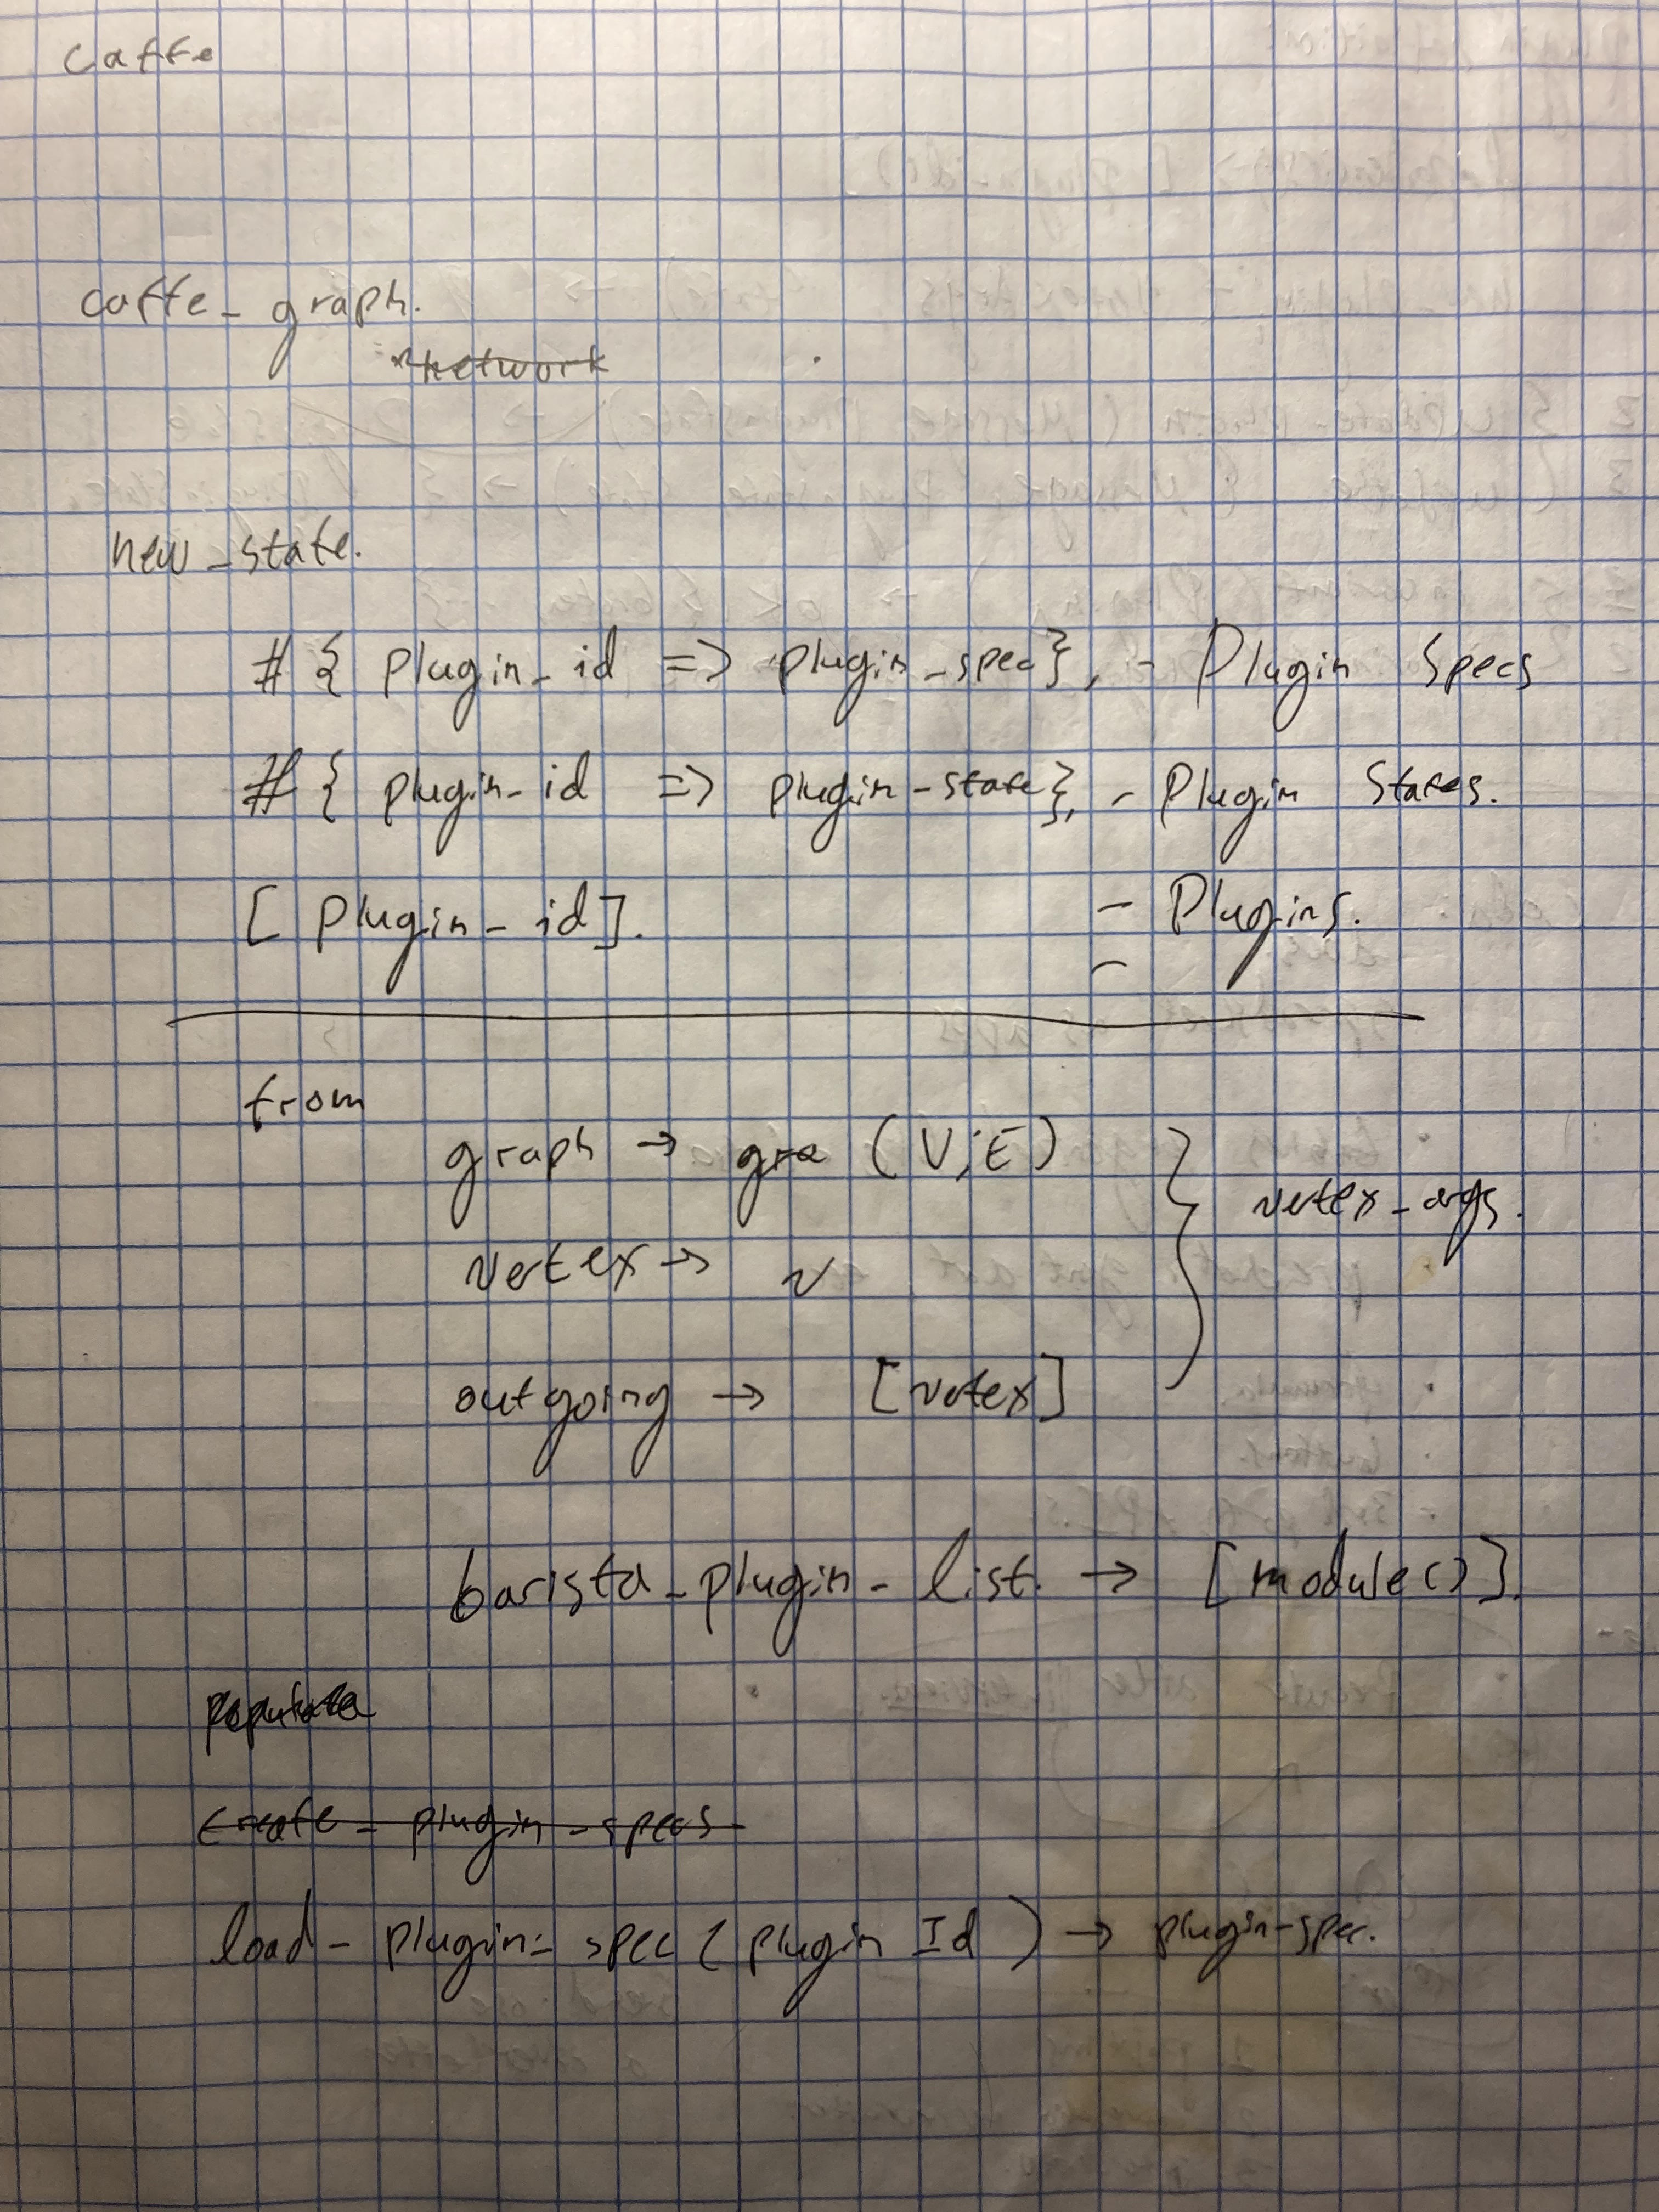 caffe
caffe_graph.
network
new_state.
#{ plugin_id => plugin_spec}, - Plugin Specs
#{ plugin_id => plugin_state}, - Plugin States.
[ plugin_id]. - Plugins.
from
graph → gra (V, E)
vertex → v
vertex_args.
outgoing → [vertex]
barista_plugin_list. → [module()].
populate
create_plugin_specs
load_plugin_spec ( plugin Id ) → plugin_spec.